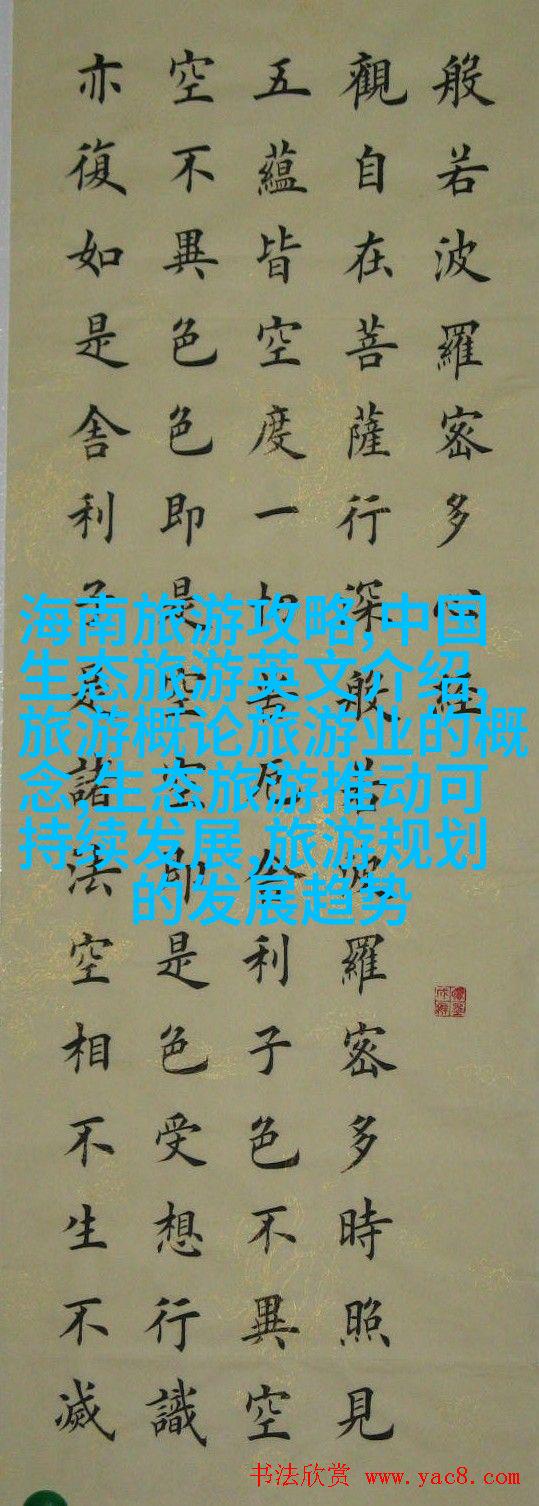 般若波羅密多心經
觀自在菩薩行深般若波羅密多時照見
五蘊皆空度一切苦厄舍利子色不異空
空不異色色即是空空即是色受想行識
亦復如是舍利子是諸法空相不生不滅
海南旅游攻略,中国
生态旅游英文介绍,
旅游概论旅游业的概
念,生态旅游推动可
持续发展,旅游规划
的发展趋势
书法欣赏 www.yac8.com